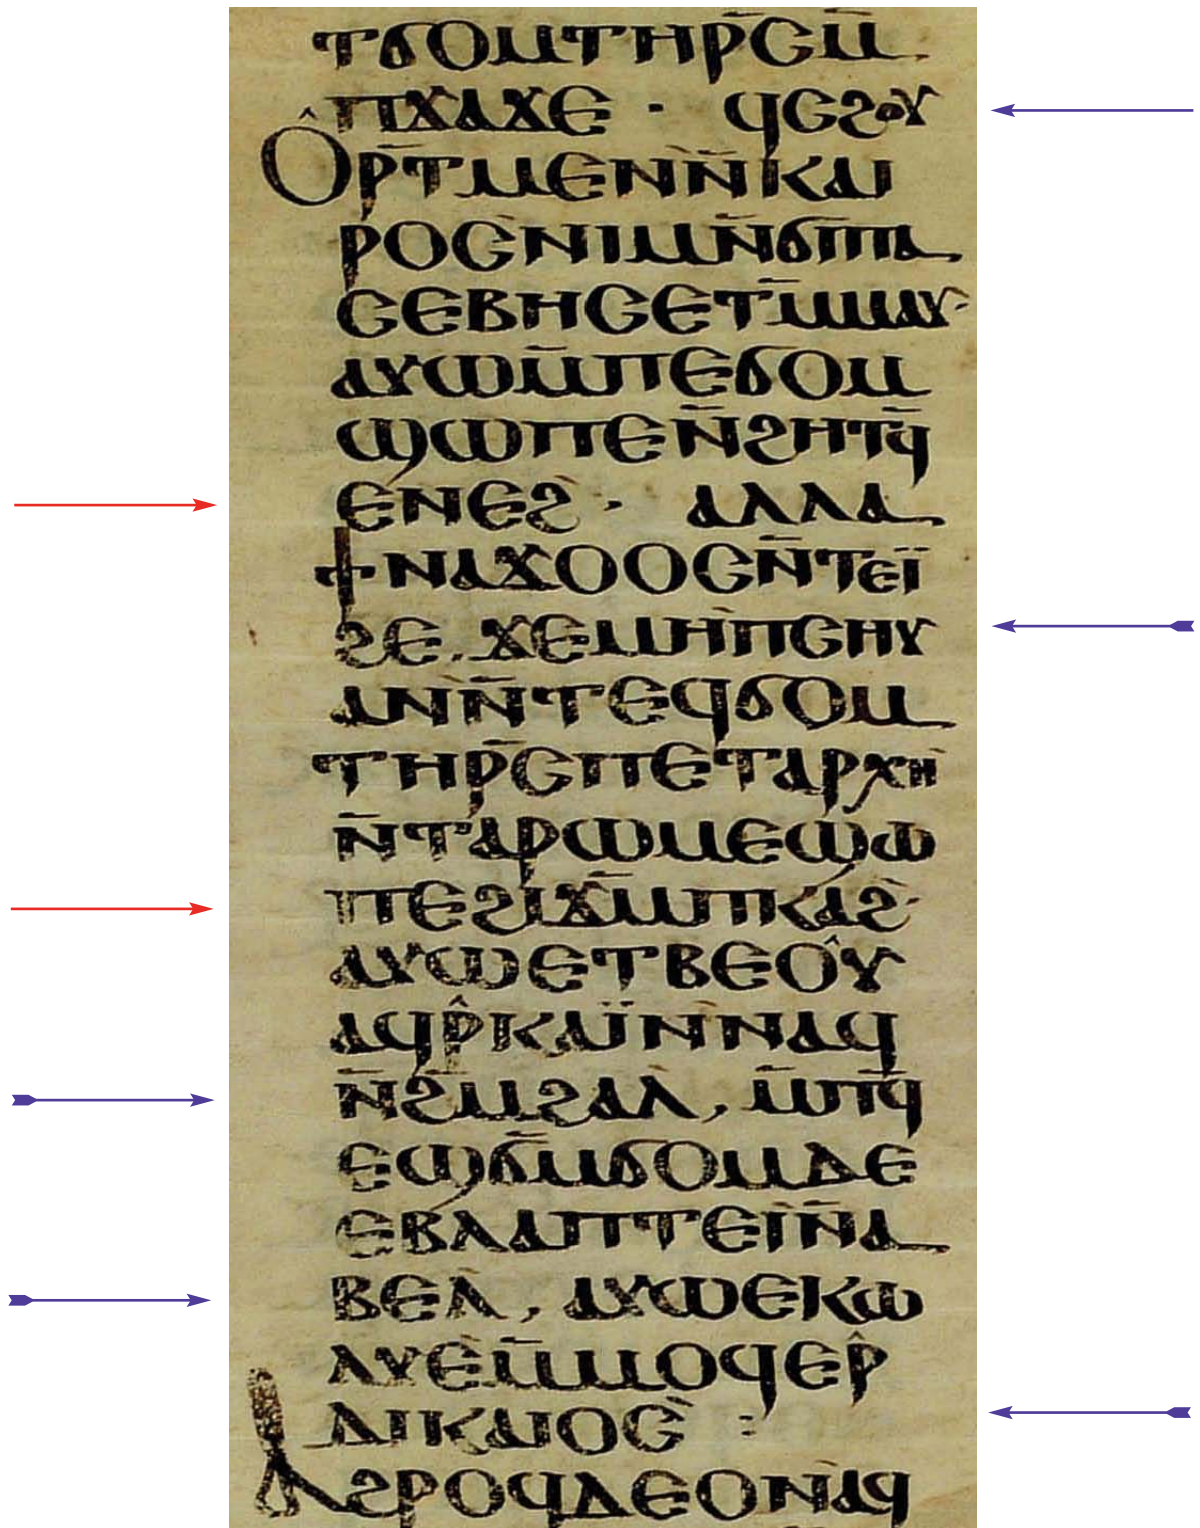 ⲧϭⲟⲙⲧⲏⲣ̄ⲥⲙ̄
ⲡϫⲁϫⲉ · ϥⲥϩⲟⲩ
ⲟ̂ⲣⲧ̄ⲙⲉⲛⲛ̄ⲕⲁⲓ
ⲣⲟⲥⲛⲓⲙⲛ̄ϭⲓⲡⲁ
ⲥⲉⲃⲏⲥⲉⲧⲙ̄ⲙⲁⲩ·
ⲁⲩⲱⲙ̄ⲡⲉϭⲟⲙ
ϣⲱⲡⲉⲛ̄ϩⲏⲧϥ̄
ⲉⲛⲉϩ · ⲁⲗⲗⲁ
ϯⲛⲁϫⲟⲟⲥⲛ̄ⲧⲉⲓ̈
ϩⲉ . ϫⲉⲙⲏⲡⲥⲏⲩ
ⲁⲛⲛ̄ⲧⲉϥϭⲟⲙ
ⲧⲏⲣ̄ⲥⲡⲉⲧⲁⲣⲭⲏ
ⲛ̄ⲧⲁⲣⲱⲙⲉϣⲱ
ⲡⲉϩⲓϫⲙ̄ⲡⲕⲁϩ·
ⲁⲩⲱⲉⲧⲃⲉⲟⲩ̂
ⲁϥⲣ̂ⲕⲁⲓ̈ⲛⲛⲁϥ
ⲛ̄ϩⲙϩⲁⲗ , ⲙ̄ⲡϥ̄
ⲉϣϭⲙ̄ϭⲟⲙⲇⲉ
ⲉⲃⲗⲁⲡⲧⲉⲓⲛ̄ⲁ
ⲃⲉⲗ , ⲁⲩⲱⲉⲕⲱ
ⲗⲩⲉⲙ̄ⲙⲟϥⲉⲣ̂
ⲇⲓⲕⲁⲓⲟⲥ :
ⲁϩⲣⲟϥⲇⲉⲟⲛⲁϥ